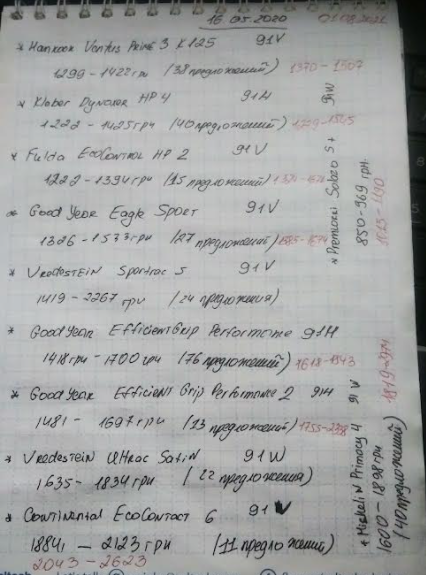 16.05.2020
* Hankook Ventus Prime 3 K125 91V
1299-1422 грн (38 предложений) 1370-1507
* Kleber Dynaxer HP4 91H
1222-1425 грн (40 предложений)
* Fulda EcoControl HP 2 91V
1222-1394 грн (15 предложений)
* Good Year Eagle Sport 91V
1326-1533 грн (27 предложений)
* Vredestein Sportrac 5 91V
1419-2267 грн (24 предложения)
* Good Year EfficientGrip Performance 91H
1418 грн - 1700 грн (76 предложений) 1618-1943
* Good Year Efficient Grip Performance 2 91H
1481-1697 грн (13 предложений)
* Vredestein Ultrac Satin 91W
1635-1834 грн (22 предложения)
* Continental EcoContact 6 91V
1884 - 2123 грн (11 предложений)
2043-2623
* Premiorri Solazo S+ 91W
850-969 грн.
* Michelin Primacy 4 91V
1600-1898 грн
(40 предложений)